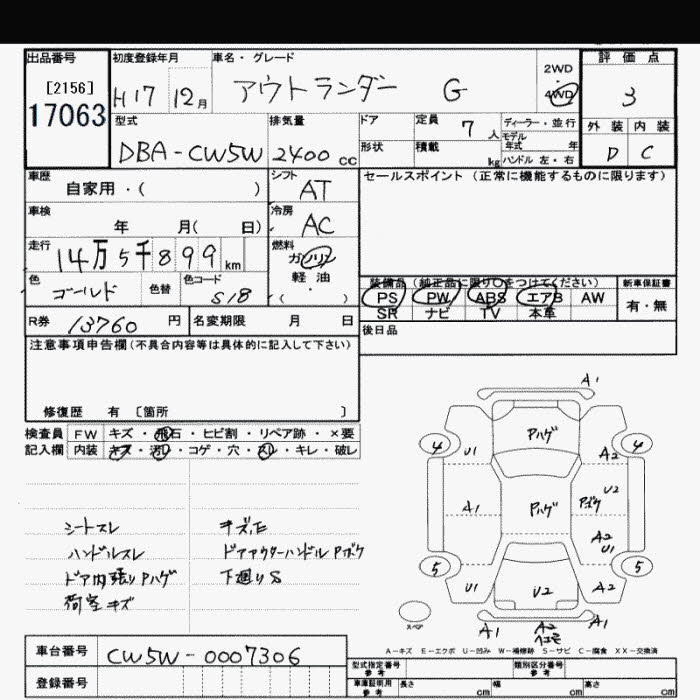 出品番号 初度登録年月 車名・グレード 評価点
[2156] H17 12月 アウトランダー G 2WD 4WD 3
17063 型式 排気量 ドア 定員 7人 ディーラー・並行 外装 内装
DBA-CW5W 2400cc 形状 積載 kg モデル年式 年 D C
ハンドル 左・右
車歴 シフト セールスポイント (正常に機能するものに限ります)
自家用・( ) AT
車検 冷房
年 月( 日) AC
走行 燃料
14万5千899km ガソリン
軽油
色 色替 色コード ・( )
ゴールド S18
装備品(純正品に限り○をつけてください) 新車保証書
PS PW ABS エアB AW 有・無
SR ナビ TV 本革
R券 13760円 名変期限 月 日 後日品
注意事項申告欄(不具合内容等は具体的に記入して下さい)
修復歴 有 [箇所 ]
検査員 FW キズ・飛石・ヒビ割・リペア跡・×要
記入欄 内装 キズ・汚レ・コゲ・穴・スレ・キレ・破レ
シートスレ キズ凹
ハンドルスレ ドアアウターハンドルPボケ
ドア内張りPハゲ 下廻りS
荷室キズ
A1
Pハゲ
4 4
U1 A2
U2
A1 Pハゲ Pボケ
A2
U1
5 5
U1 U2 A2
スペア
A1 A2 A1
A-キズ E-エクボ U-凹み W-補修跡 S-サビ C-腐食 XX-交換済
車台番号 CW5W-0007306
登録番号
型式指定番号 参考 類別区分番号 参考
車庫証明用 参考 長さ cm 幅 cm 高さ cm